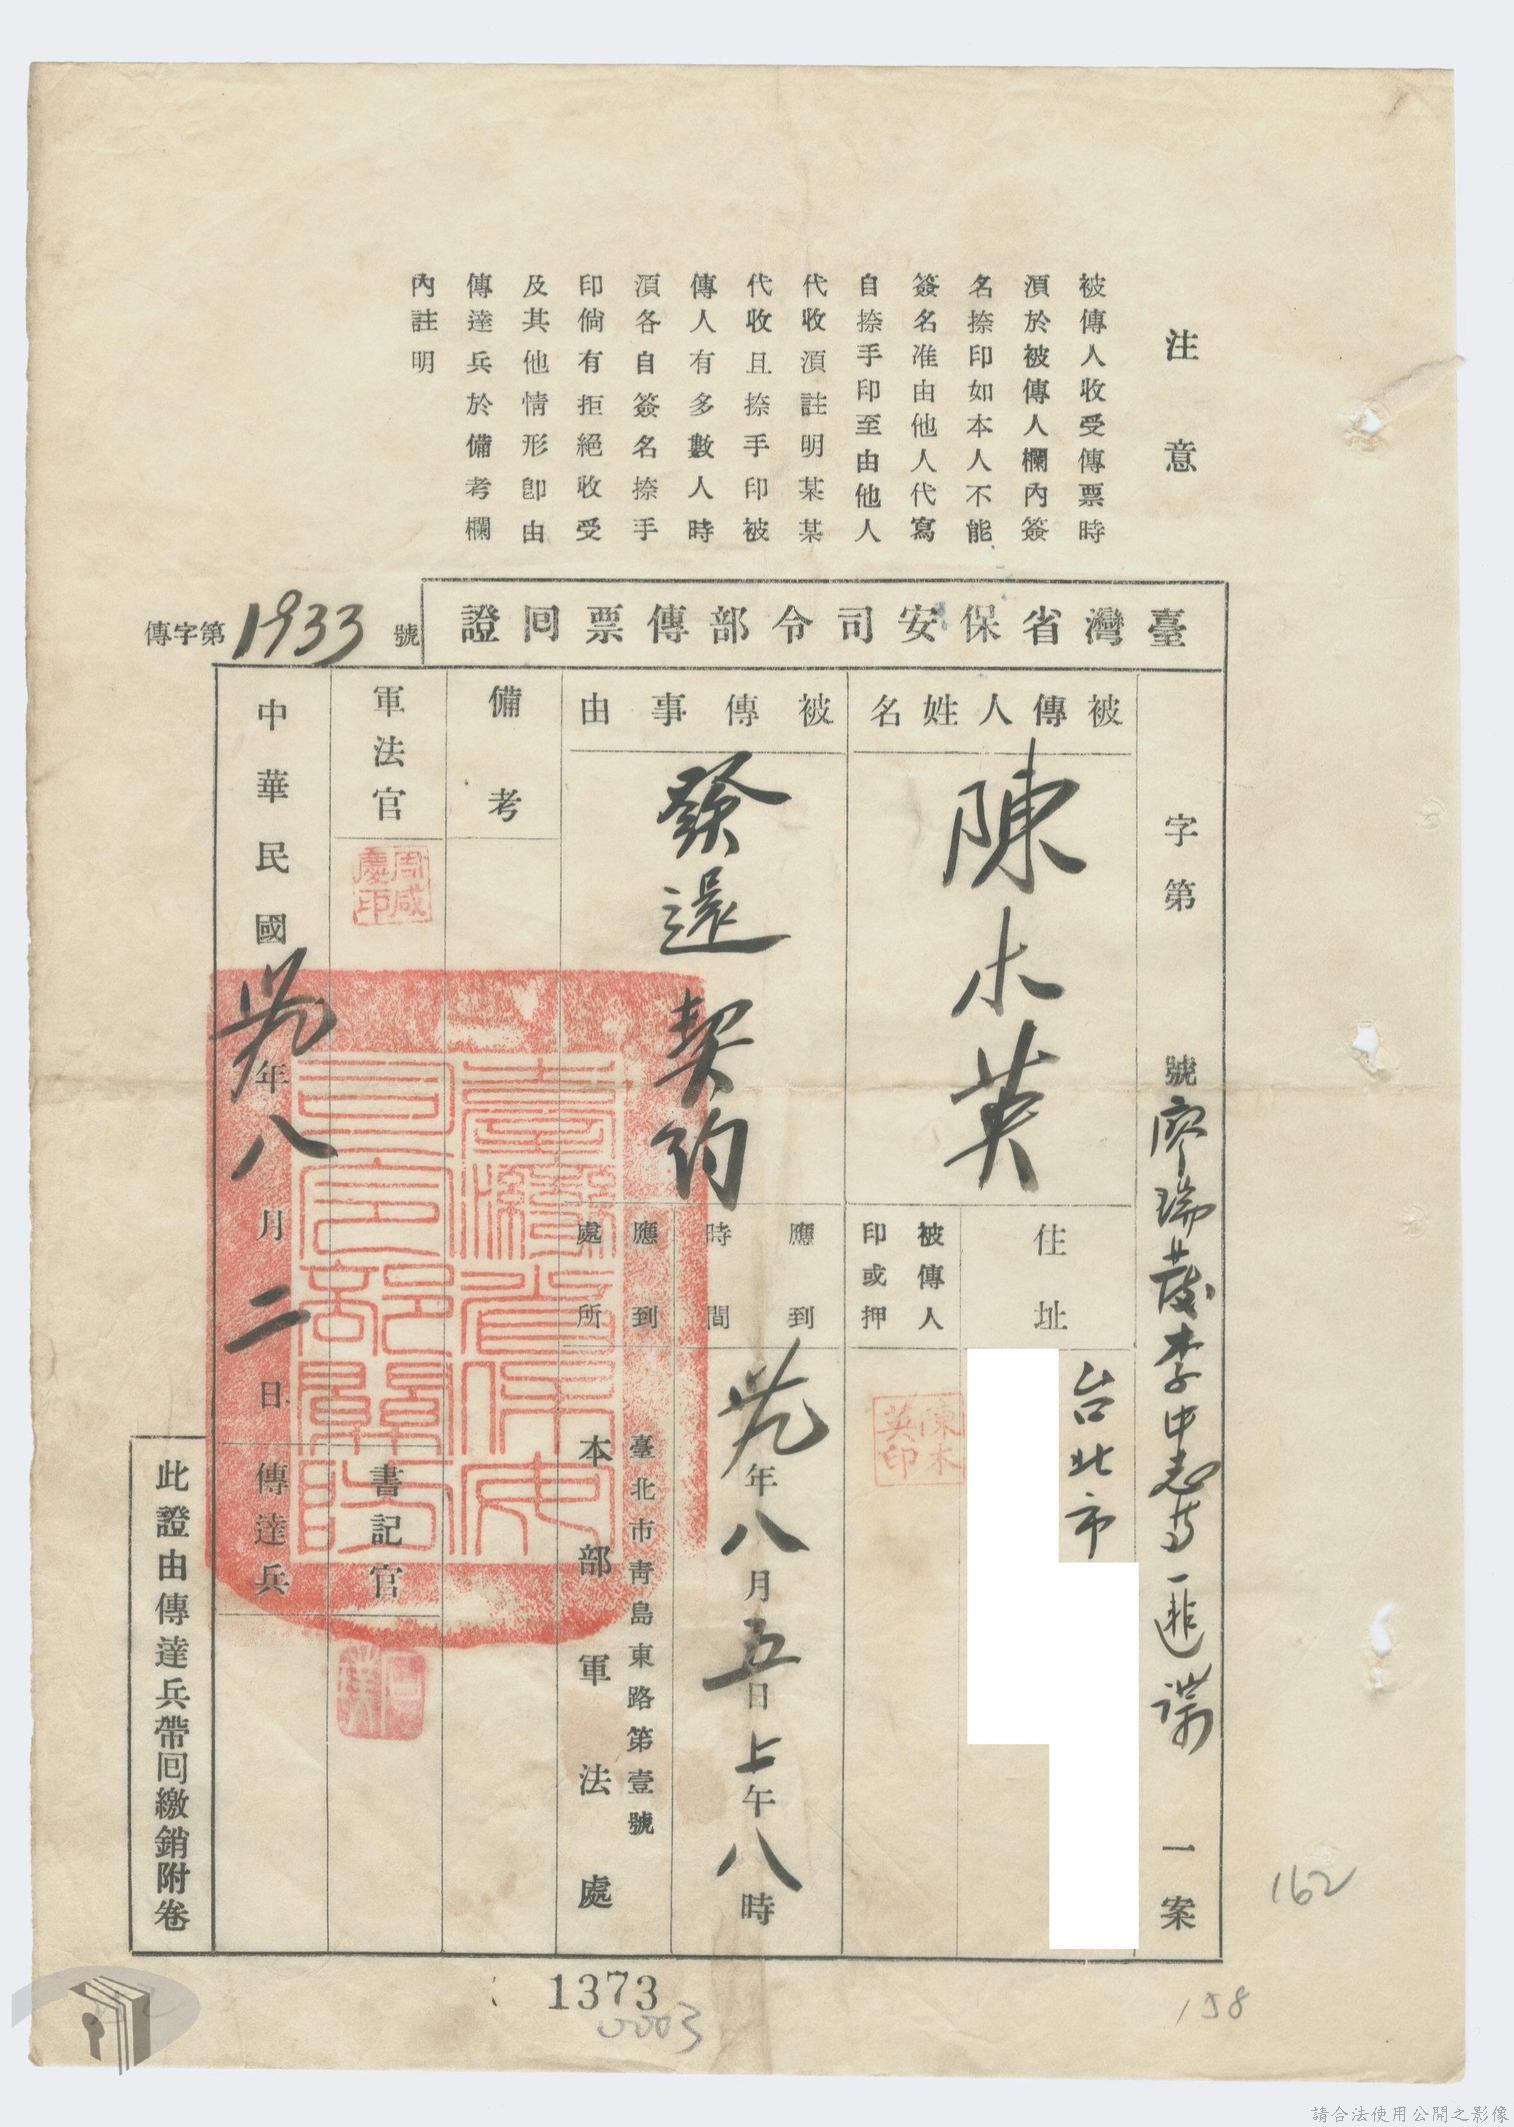 注意
被傳人收受傳票時
須於被傳人欄內簽
名捺印如本人不能
簽名准由他人代寫
自捺手印至由他人
代收須註明某某
代收且捺手印被
傳人有多數人時
須各自簽名捺手
印倘有拒絕收受
及其他情形卽由
傳達兵於備考欄
內註明
臺灣省保安司令部傳票回證
傳字第1933號
字第 號廖瑞發李中志等匪諜 一案
被傳人姓名
陳木英
住址
台北市
被傳人
印或押
陳木
英印
被傳事由
發還契約
應到
時間
卅九年八月五日上午八時
應到
處所
臺北市靑島東路第壹號
本部軍法處
備考
軍法官
周咸
慶印
書記官
中華民國卅九年八月二日
傳達兵
臺灣省保安
司令部關防
此證由傳達兵帶回繳銷附卷
1373
0003
162
158
請合法使用公開之影像